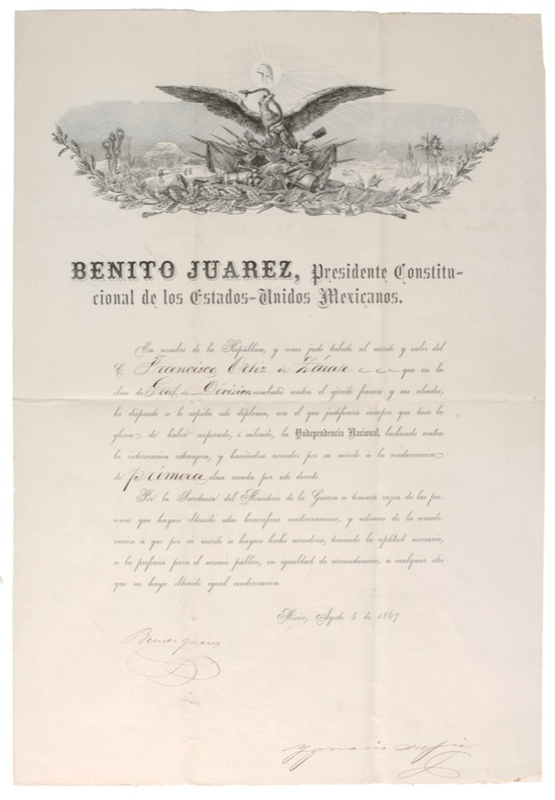 BENITO JUAREZ, Presidente Constitu-
cional de los Estados-Unidos Mexicanos.
En nombre de la República, y como justo tributo al mérito y valor del
C. Francisco Ortiz de Zárate que en la
clase de Gral. de Division combatió contra el ejército frances y sus aliados,
he dispuesto se le espida este diploma, con el que justificará siempre que tuvo la
gloria de haber cooperado, á salvar, la Independencia Nacional, luchando contra
la intervencion estrangera, y haciéndose acreedor por su mérito á la condecoracion
de primera clase creada por este decreto.
Por la Secretaría del Ministerio de la Guerra se tomará razon de las per-
sonas que hayan obtenido estas honoríficas condecoraciones, y ademas de la conside-
racion á que por su mérito se hayan hecho acreedores, teniendo la aptitud necesaria,
se les preferirá para el servicio público, en igualdad de circunstancias, á cualquier otro
que no haya obtenido igual condecoracion.
México, Agosto 5 de 1867.
Benito Juarez
Ygnacio Mejia